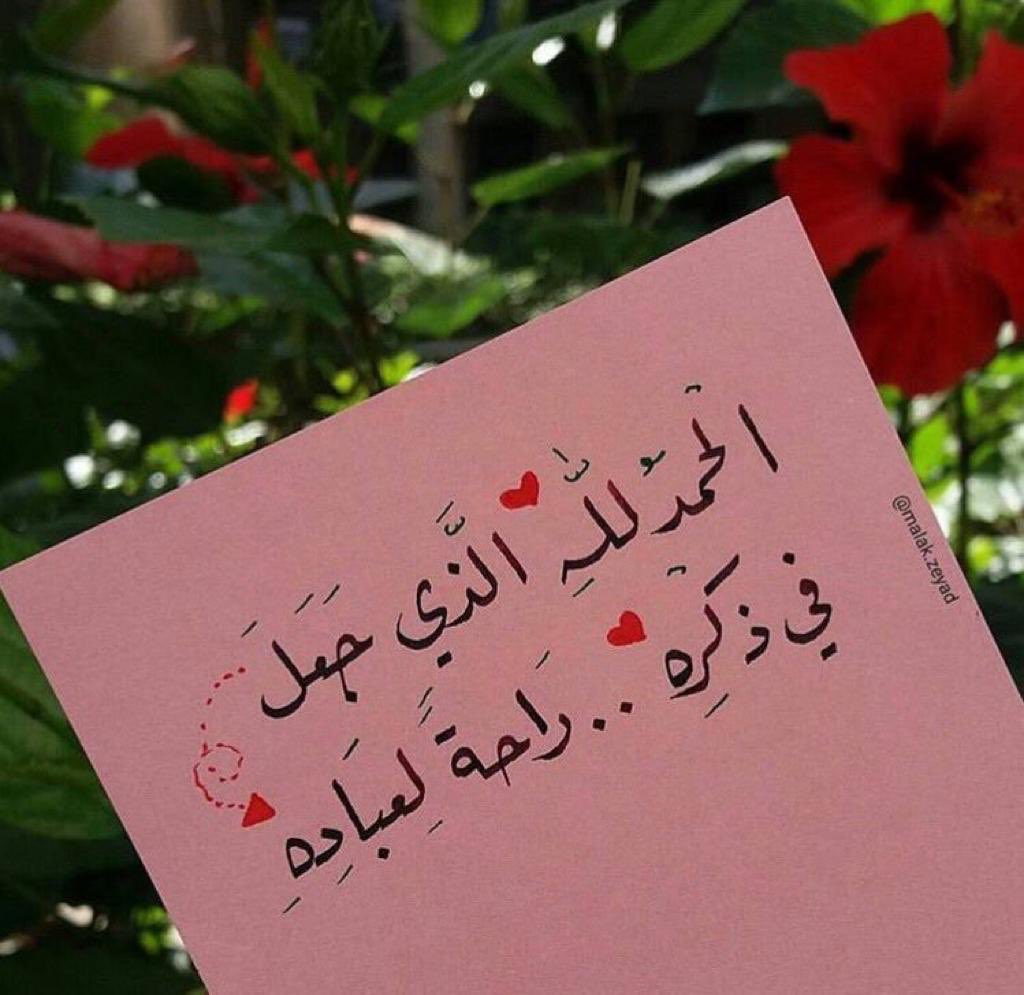 الحمْدُ للّٰهِ الَّذي جَعَلَ
في ذكْرِه .. رَاحةً لعِبَادِهِ
@malak.zeyad